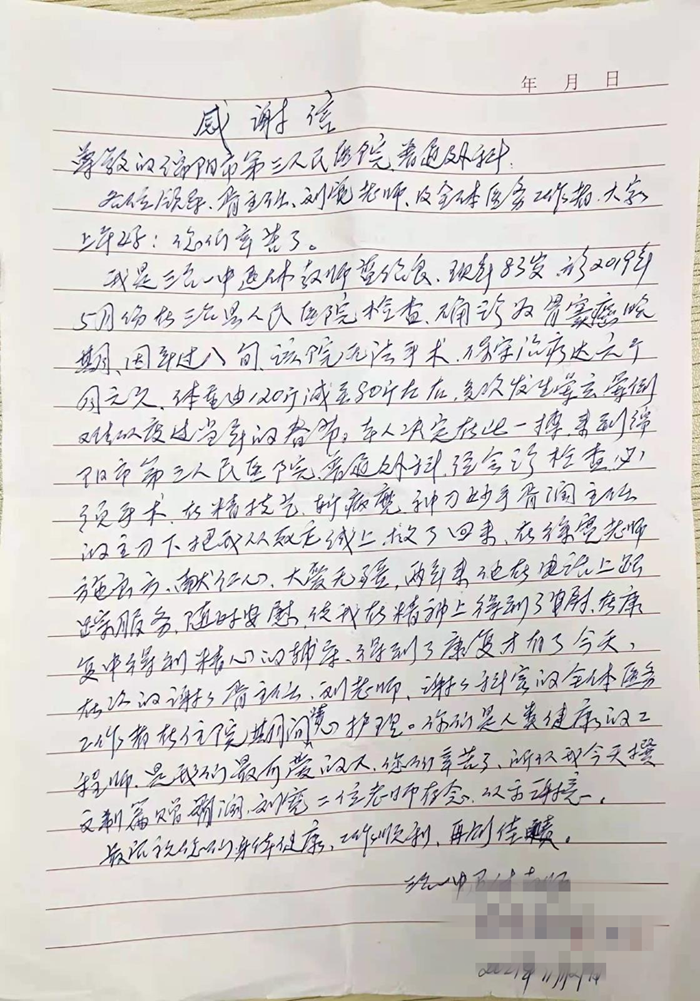 年 月 日
感谢信
尊敬的绵阳市第三人民医院普通外科:
各位领导、胥主任、刘宽老师、及全体医务工作者、大家
上午好:你们辛苦了。
我是三台一中退休教师 现年83岁、于2019年
5月份在三台县人民医院检查、确诊为胃窦癌晚
期、因年过八旬、该院无法手术、保守治疗达六个
月无效、体重由120斤减至80斤左右,多次发生晕倒
难以度过当年的春节。本人决定在此一搏,来到绵
阳市第三人民医院、普通外科,经会诊检查,必
须手术、在精技艺、斩病魔、神刀妙手胥润主任
的主刀下把我从死亡线上救了回来,在 老师
施良方、献仁心、大爱无疆,两年来他在电话上跟
踪服务、随时安慰,使我在精神上得到了 在康
复中得到精心的辅导、得到了康复才有了今天,
在次的谢谢胥主任、刘老师、谢谢科室的全体医务
工作者在住院期间 心护理。你们是人类健康的工
程师、是我们最可爱的人、你们辛苦了、所以我今天撰
文制篇赠胥润、刘宽二位老师存念、以示谢意。
最后祝你们身体健康、工作顺利、再创佳绩。
2021年11月